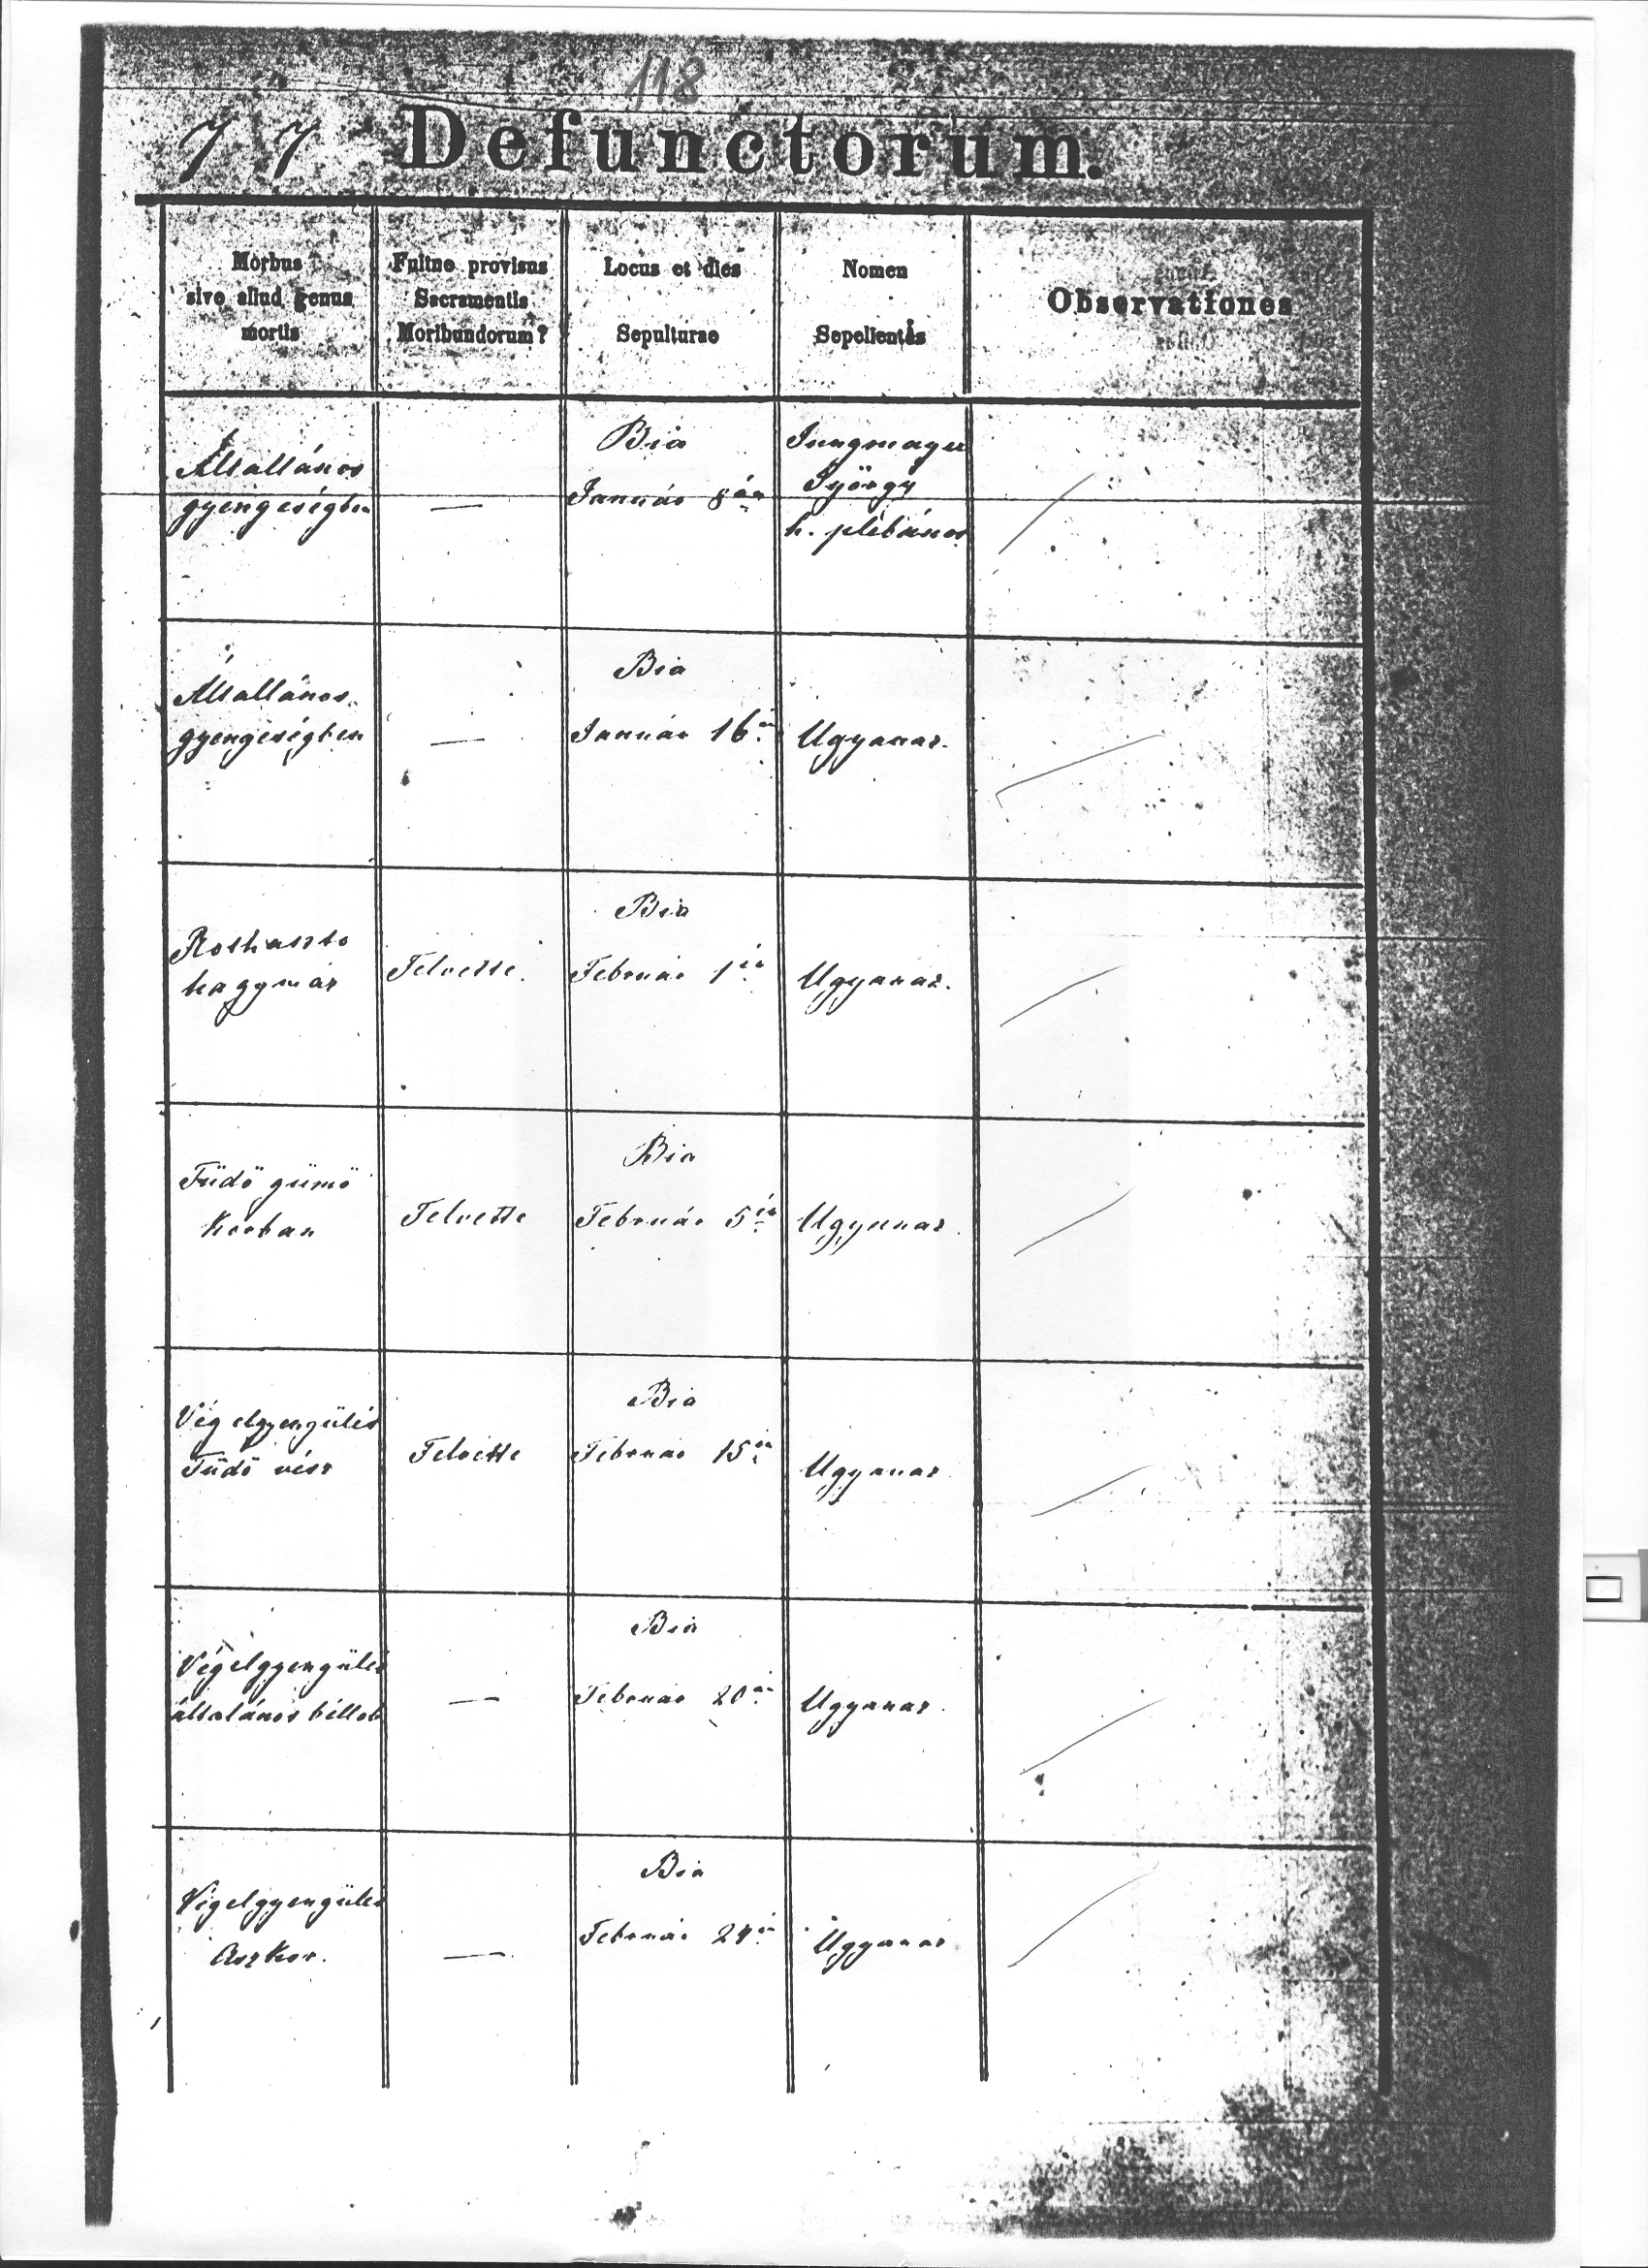 118
77 Defunctorum.
Morbus
sive aliud genus
mortis
Fuitne provisus
Sacramentis
Moribundorum?
Locus et dies
Sepulturae
Nomen
Sepelientis
Observationes
Általlános
gyengeségben
—
Bia
Január 8án
Jungmayer
György
h. plébános
Általlános
gyengeségben
—
Bia
Január 16án
Ugyanaz.
Rothaszto
hagymáz
Felvette.
Bia
Február 1én
Ugyanaz.
Tüdö gümö
Korban
Felvette
Bia
Február 5én
Ugyanaz.
Vég elgyengülés
Tüdö vész
Felvette
Bia
Február 15én
Ugyanaz
Végelgyengülés
általános
—
Bia
Február 20án
Ugyanaz.
Végelgyengülés
Aszkor.
—
Bia
Február 24én
Ugyanaz